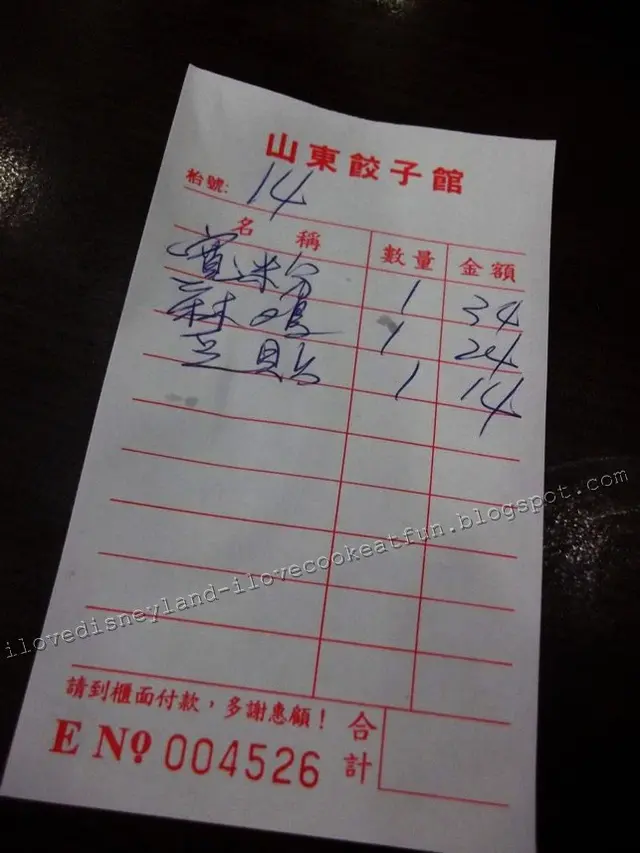 山東餃子館
枱號: 14
名稱 數量 金額
寬米分 1 34
麻鳮 1 24
豆 1 14
請到櫃面付款，多謝惠顧！
合計
E No 004526
ilovedisneyland-ilovecookeatfun.blogspot.com